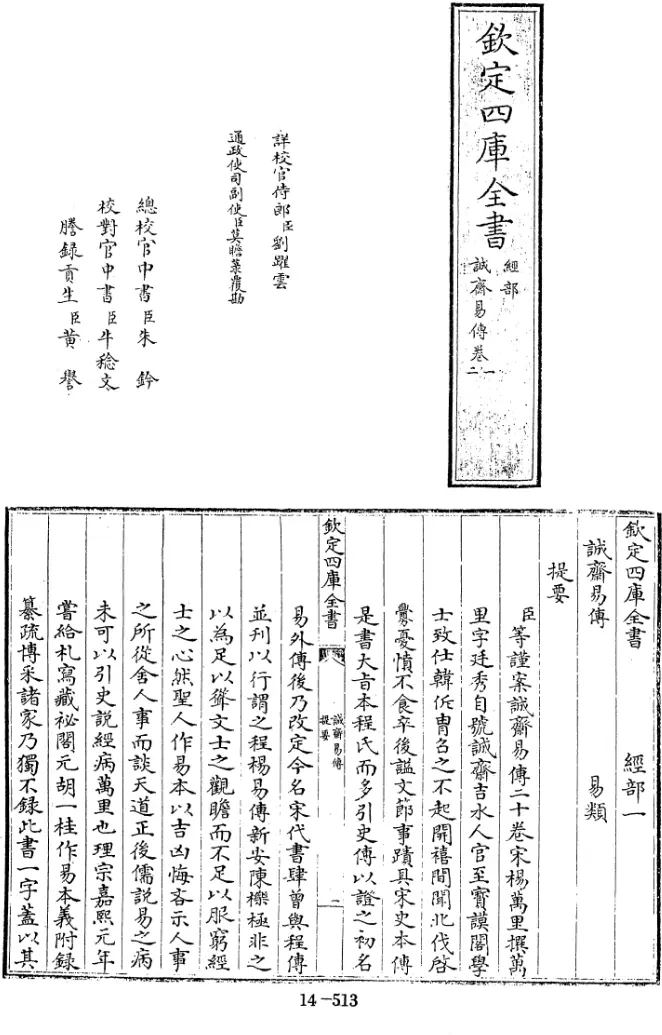 欽定四庫全書
經部
誠齋易傳卷一
二
詳校官侍郎臣劉躍雲
通政使司副使臣莫瞻菉覆勘
總校官中書臣朱鈐
校對官中書臣牛稔文
謄錄貢生臣黃譽
欽定四庫全書 經部一
誠齋易傳 易類
提要
臣等謹案誠齋易傳二十卷宋楊萬里撰萬
里字廷秀自號誠齋吉水人官至寳謨閣學
士致仕韓侂胄召之不起開禧間聞北伐啓
釁憂憤不食卒後諡文節事蹟具宋史本傳
是書大㫖本程氏而多引史傳以證之初名
欽定四庫全書
誠齋易傳
提要
二
易外傳後乃改定今名宋代書肆曾與程傳
並刋以行謂之程楊易傳新安陳櫟極非之
以為足以聳文士之觀瞻而不足以服窮經
士之心然聖人作易本以吉凶悔吝示人事
之所從舍人事而談天道正後儒説易之病
未可以引史説經病萬里也理宗嘉熙元年
嘗給札寫藏祕閣元胡一桂作易本義附録
纂疏博采諸家乃獨不錄此書一字蓋以其
14-513